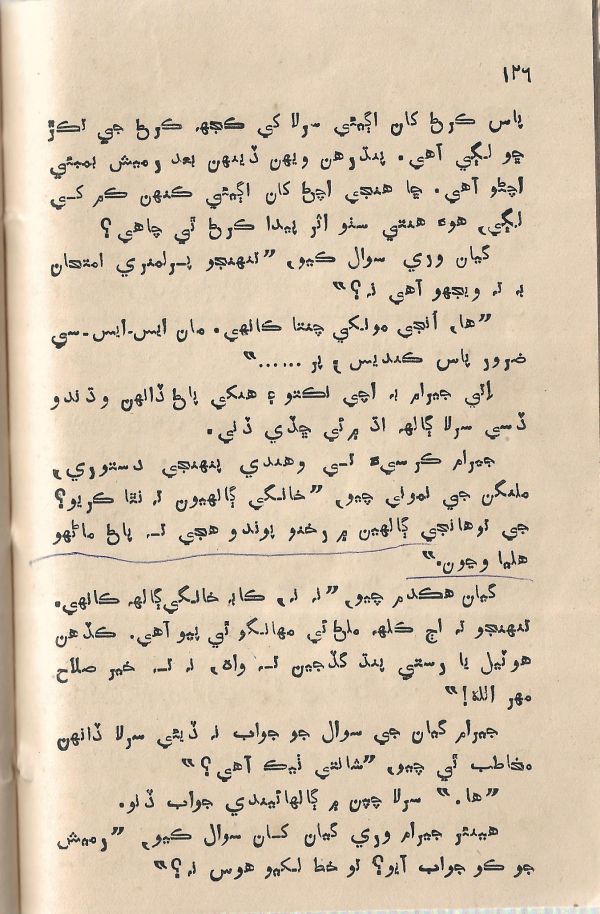 ١٢٦
پاس ڪرڻ کان اڳيئي سرلا کي ڪجهہ ڪرڻ جي تڪڙ
ڇو لڳي آهي. پندرهن ويهن ڏينهن بعد رميش بمبئي
اچڻو آهي. ڇا هنجي اچڻ کان اڳيئي ڪنهن ڪم کي
لڳي، هوءَ هنتي سٺو اثر پيدا ڪرڻ ٿي چاهي؟
گيان وري سوال ڪيو، ”تنهنجو پرلمنري امتحان
بہ تہ ويجهو آهي نہ؟“
”ها، اُنجي مونکي چنتا ڪانهي. مان ايس-ايس-سي
ضرور پاس ڪنديس ۽ پر ......“
اِتي جيرام بہ اچي نڪتو ۽ هنکي پاڻ ڏانهن وڌندو
ڏسي سرلا ڳالهہ اڌ ۾ ئي ڇڏي ڏني.
جيرام ڪرسيءَ تي وهندي پنهنجي دستوري،
ملنگن جي نموني چيو، ”خانگي ڳالهيون تہ نٿا ڪريو؟
جي توهانجي ڳالهين ۾ رخنو پوندو هجي تہ پاڻ ماڻهو
هليا وڃون.“
گيان هڪدم چيو، ”نہ نہ، ڪابہ خانگي ڳالهہ ڪانهي.
تنهنجو تہ اڄ ڪلهہ ملڻ ئي مهانگو ٿي پيو آهي. ڪڏهن
هوٽيل يا رستي پنڌ گڏجين تہ واہ، نہ تہ خير صلاح
مهر الله!“
جيرام گيان جي سوال جو جواب نہ ڏيئي سرلا ڏانهن
مخاطب ٿي چيو، ”شانتي ٺيڪ آهي؟“
”ها.“ سرلا چپن ۾ ڳالهائيندي جواب ڏنو.
هينئر جيرام وري گيان کان سوال ڪيو، ”رميش
جو ڪو جواب آيو؟ تو خط لکيو هوس نہ؟“